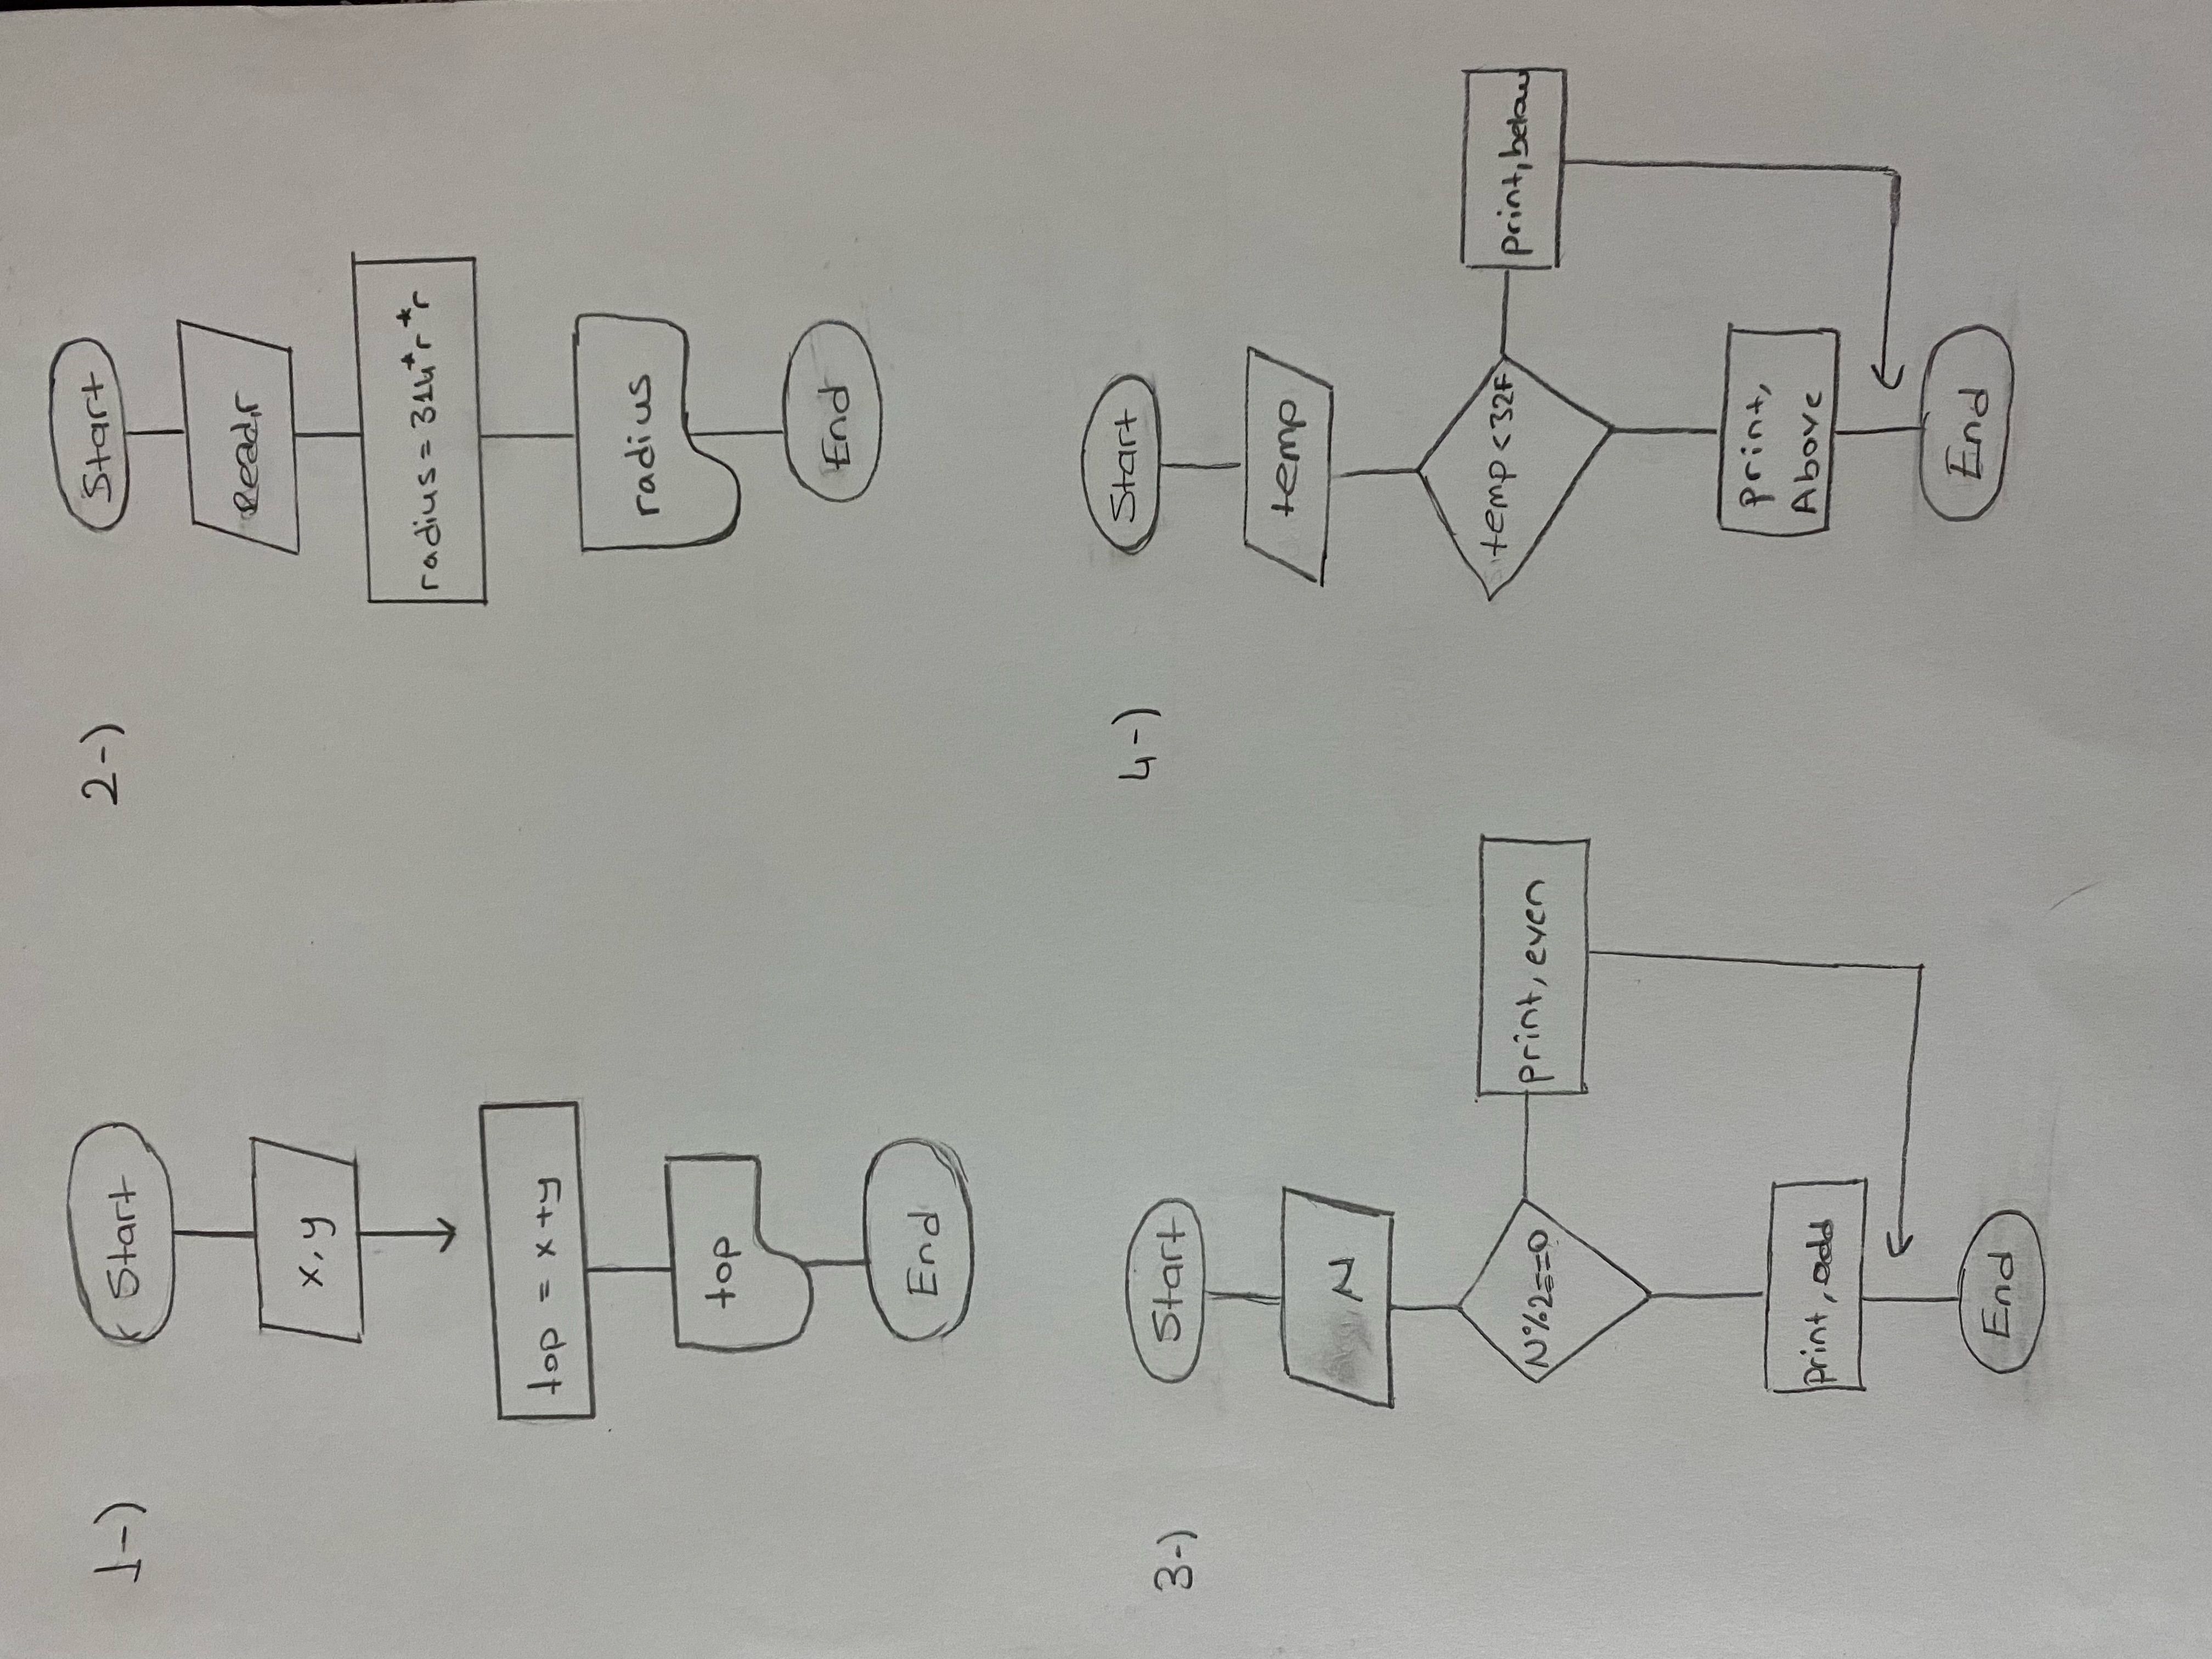 1-)
Start
x, y
top = x+y
top
End
2-)
Start
Read,r
radius = 314*r*r
radius
End
3-)
Start
N
N%2==0
print, even
print, odd
End
4-)
Start
temp
temp<32F
print, below
print,
Above
End